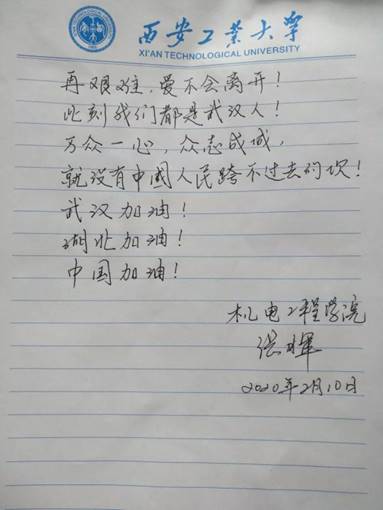 西安工业大学
XI'AN TECHNOLOGICAL UNIVERSITY
再艰难，爱不会离开！
此刻我们都是武汉人！
万众一心，众志成城，
就没有中國人民跨不过去的坎！
武汉加油！
湖北加油！
中国加油！
机电工程学院
张晖
2020年2月10日